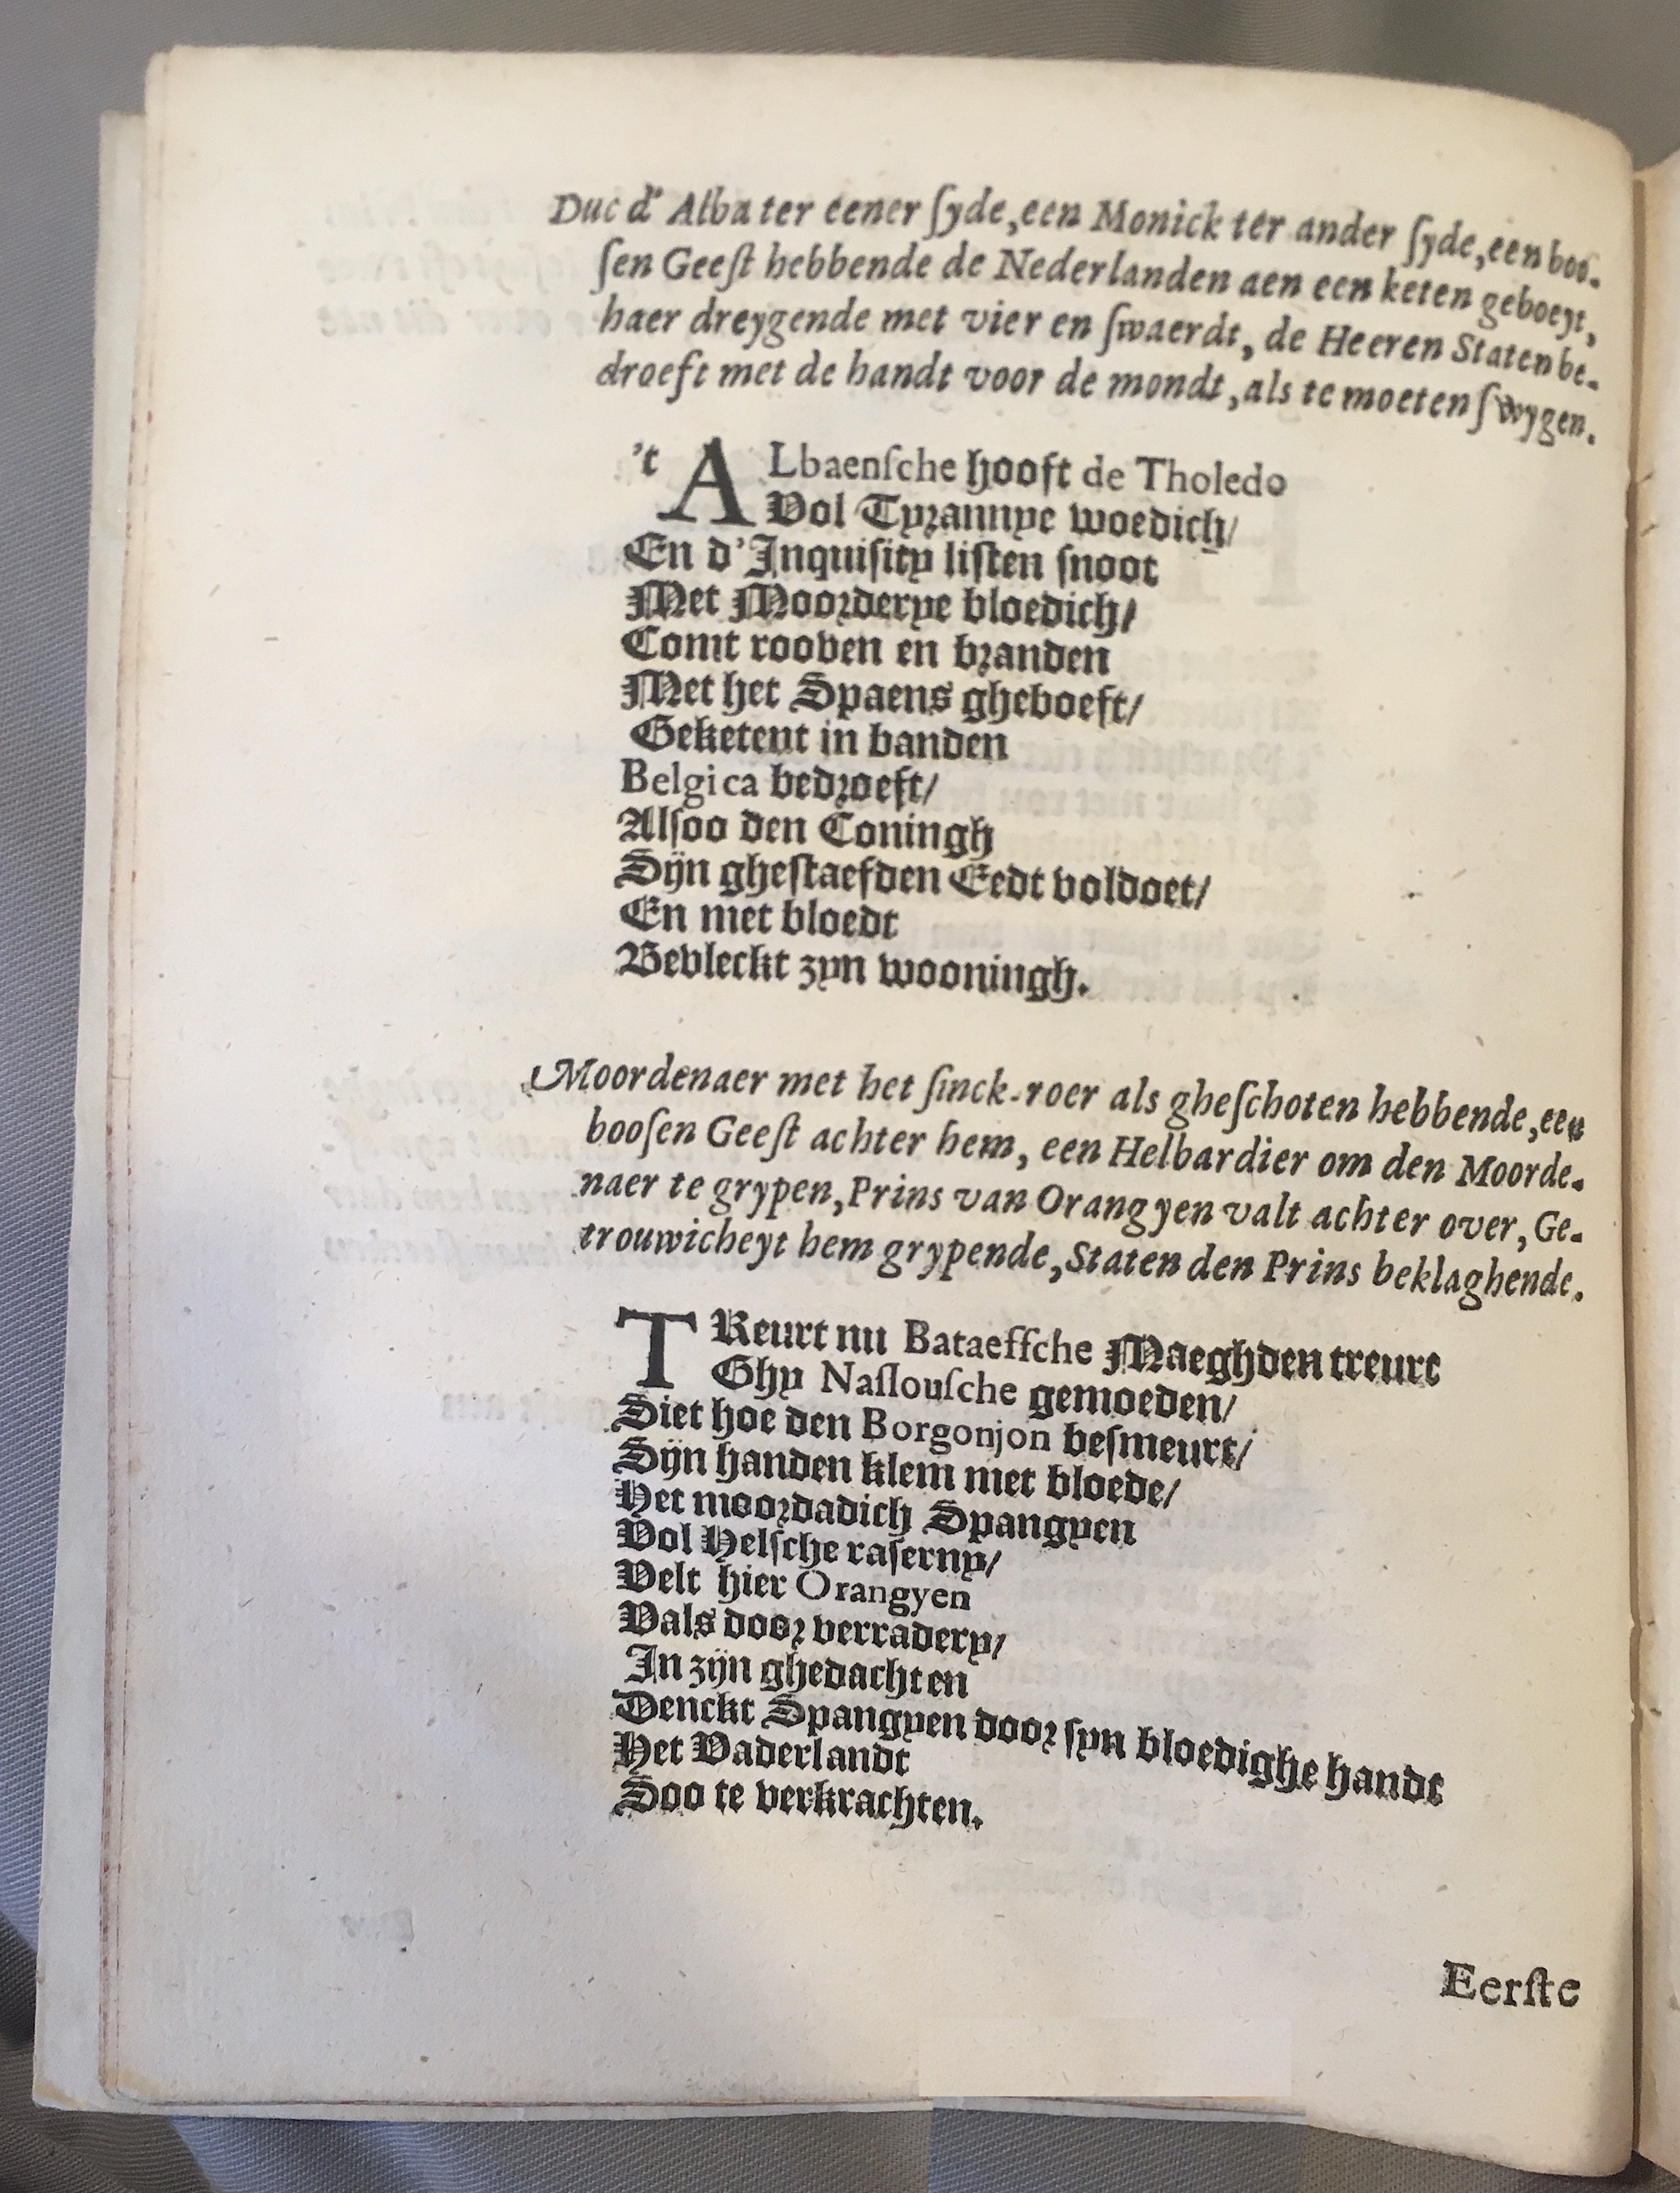 Duc d' Alba ter eener ſyde, een Monick ter ander ſyde, een boo-
ſen Geeſt hebbende de Nederlanden aen een keten geboeyt,
haer dreygende met vier en ſwaerdt, de Heeren Staten be-
droeft met de handt voor de mondt, als te moeten ſwygen.
't ALbaenſche hooft de Tholedo
Vol Tyrannye woedich/
En d'Inquiſity liſten ſnoot
Met Moorderye bloedich/
Comt rooven en branden
Met het Spaens gheboeft/
Geketent in banden
Belgica bedroeft/
Alſoo den Coningh
Sijn gheſtaefden Eedt voldoet/
En met bloedt
Bevleckt zyn wooningh.
Moordenaer met het ſinck-roer als gheſchoten hebbende, een
booſen Geeſt achter hem, een Helbardier om den Moorde-
naer te grypen, Prins van Orangyen valt achter over, Ge-
trouwicheyt hem grypende, Staten den Prins beklaghende.
TReurt nu Bataefſche Maeghden treurt
Ghy Naſſouſche gemoeden/
Siet hoe den Borgonjon beſmeurt/
Sijn handen klem met bloede/
Het moordadich Spangyen
Vol Helſche raſerny/
Velt hier Orangyen
Vals door verradery/
In zijn ghedachten
Denckt Spangyen door ſyn bloedighe handt
Het Vaderlandt
Soo te verkrachten.
Eerſte